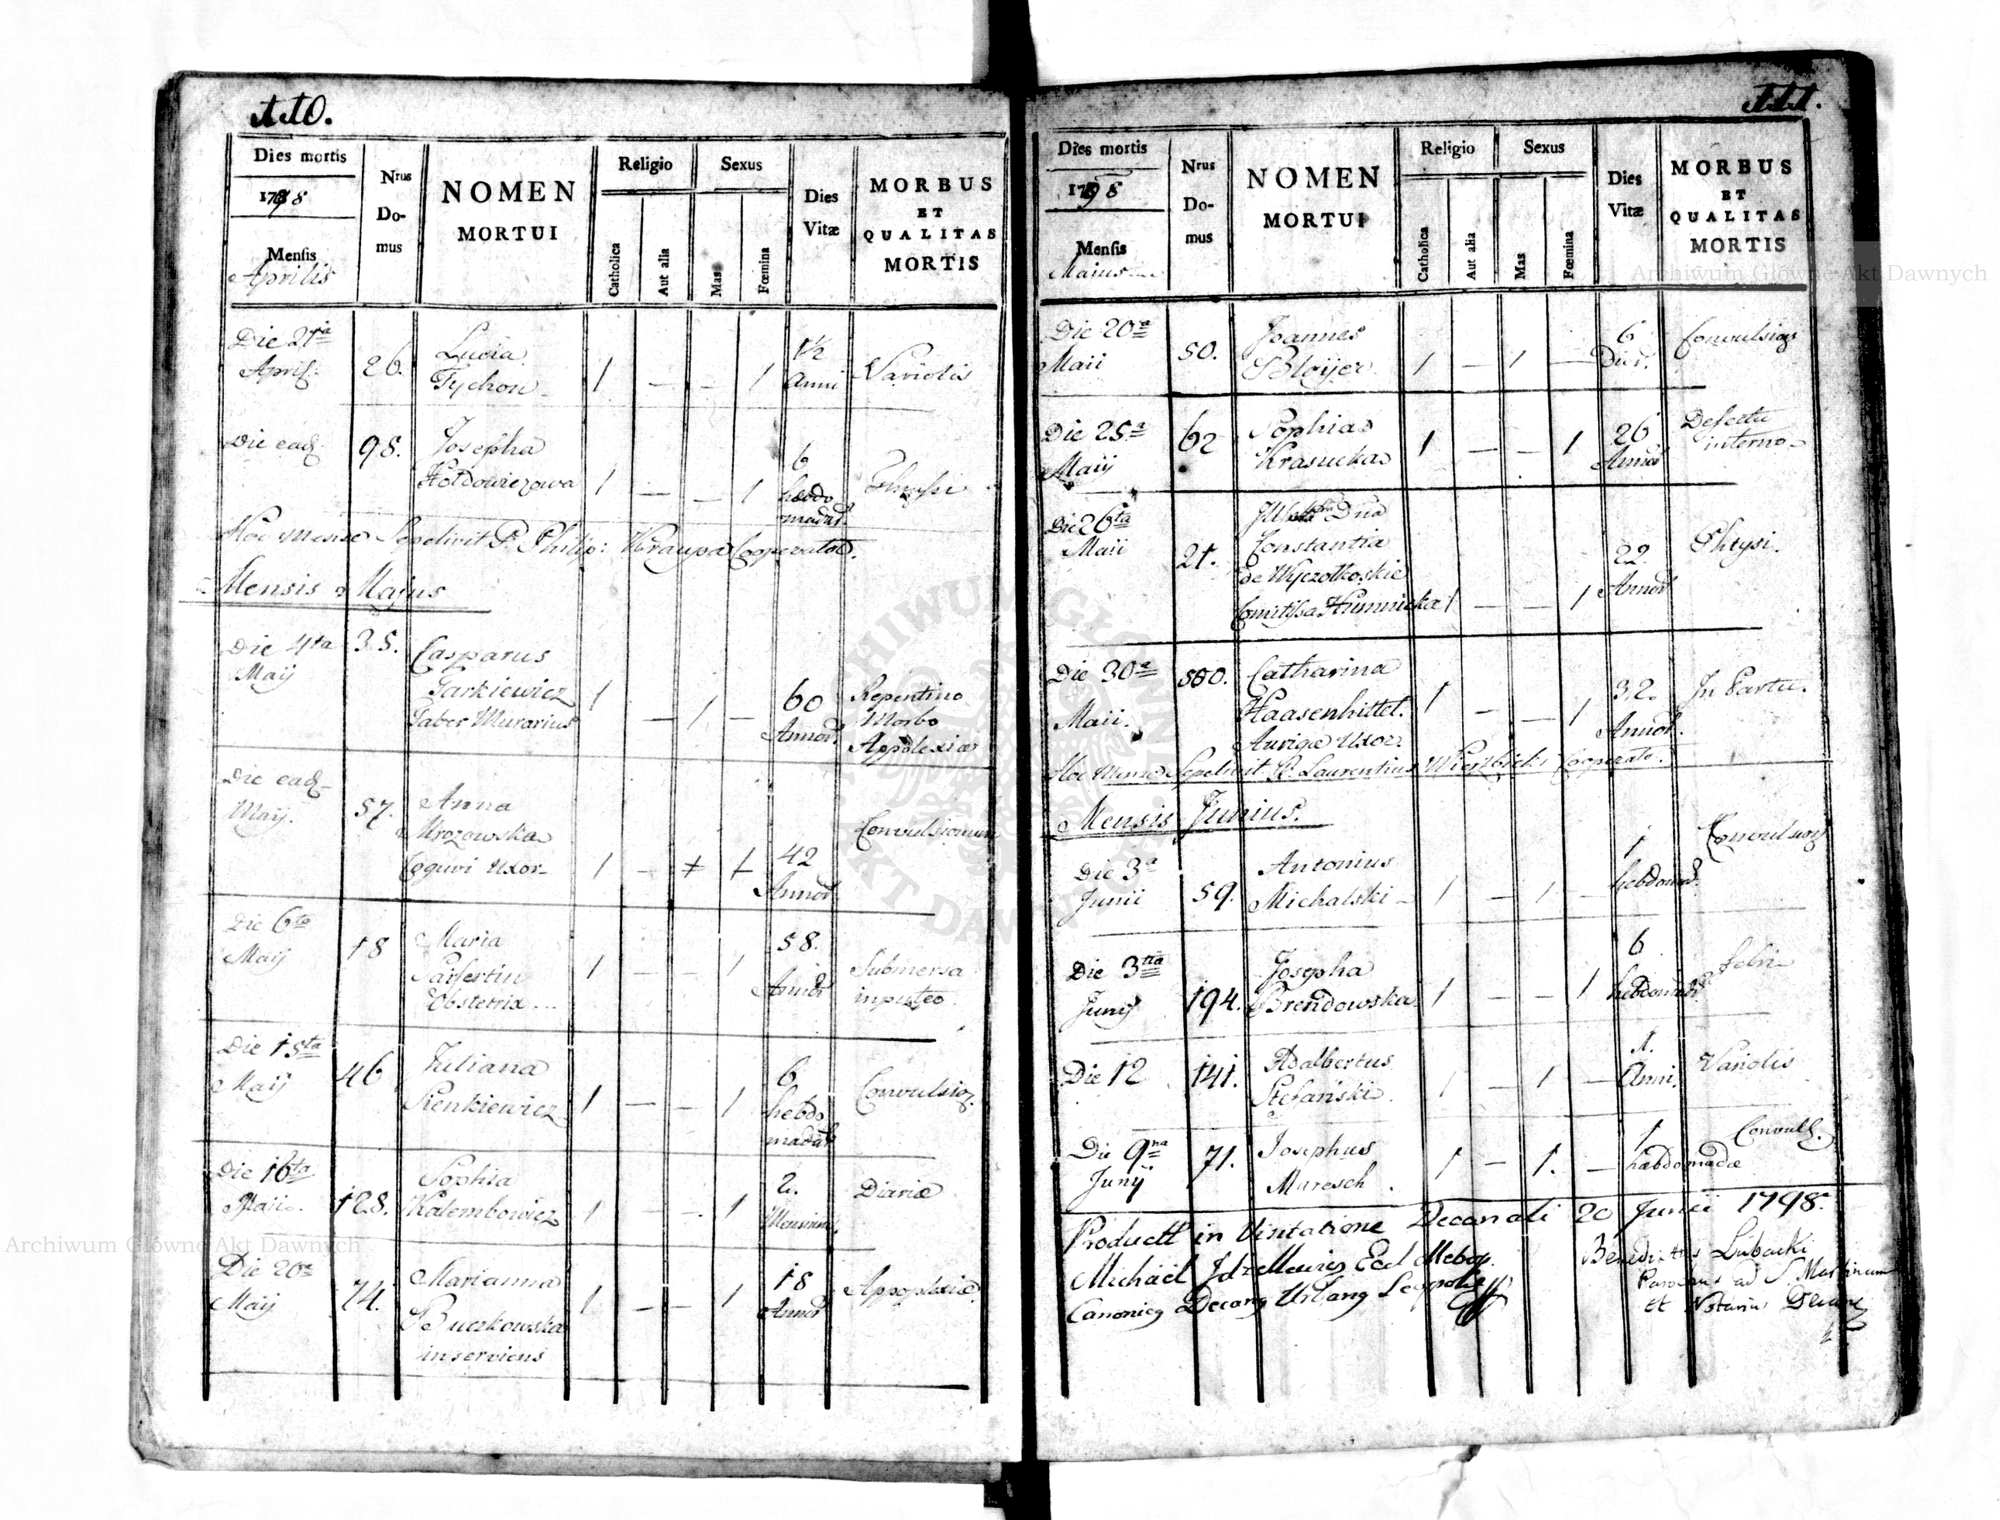 110.
Dies mortis
1798
Mensis
Aprilis
Nrus
Do-
mus
NOMEN
MORTUI
Religio
Catholica
Aut alia
Sexus
Mas
Fœmina
Dies
Vitæ
MORBUS
ET
QUALITAS
MORTIS
Die 21ma
April.
26.
Lucia
Tychon
1 — — 1
1½
Anni
Variolis
Die ead.
98.
Josepha
Hołdowiczowa
1 — — 1
6
hebdo
madar.
Hoc Mense Sepelivit P. Philip: Kraupa Cooperator.
Mensis Majus
Die 4ta
Maij
35.
Casparus
Jarkiewicz
Faber Murarius
1 — 1 —
60
Annor.
Repentino
Morbo
Appolexiæ
Die ead.
Maij.
57.
Anna
Mrozowska
Coqui Uxor
1 — + 1
42
Annor.
Convulsionum
Die 6ta
Maij
18
Maria
Obstetrix
1 — — 1
58.
Annor.
Submersa
in puteo.
Die 15ta
Maij
46
Juliana
Sienkiewicz
1 — — 1
6
hebdo
madar.
Convulsio.
Die 16ta
Maii.
128.
Sophia
Kalembowicz
1 — — 1
2.
Mensium.
Diariæ
Die 20a
Maij
74.
Marianna
Buczkowska
inserviens
1 — — 1
18
Annor.
Appoplexiæ
111.
Dies mortis
1798
Mensis
Maius
Nrus
Do-
mus
NOMEN
MORTUI
Religio
Catholica
Aut alia
Sexus
Mas
Fœmina
Dies
Vitæ
MORBUS
ET
QUALITAS
MORTIS
Die 20a
Maii
50.
Joannes
Bloijer
1 — 1 —
6
Dier.
Convulsio
Die 25a
Maij
62
Sophia
Krasucka
1 — — 1
26
Annor.
Defectu
interno
Die 26ta
Maii
21.
Dna
Constantia
de Wyczołkoskie
Comitissa Humnicka
1 — — 1
22
Annor.
Phtysi.
Die 30a
Maii.
500.
Catharina
Haasenhittel.
Aurigæ Uxor
1 — — 1
32.
Annor.
In Partu.
Hoc Mense Sepelivit P. Laurentius Wierzbicki Cooperator.
Mensis Junius.
Die 3a
Junii
59.
Antonius
Michalski
1 — 1 —
1
hebdomad.
Convulsio
Die 3tia
Junij
194.
Josepha
Brendowska
1 — — 1
6
hebdomad.
Febri
Die 12
141.
Adalbertus
Stefański
1 — 1 —
1.
Anni.
Variolis
Die 9na
Junij
71.
Josephus
Maresch.
1 — 1. —
1
hæbdomadæ
Convuls.
Product in Visitatione Decanali 20 Junii 1798.
Michael
Canonicg Decang Urbang Leopolis
Benedictus Lubacki
Parochus ad S. Martinum
et Notarius
Archiwum Główne Akt Dawnych
Archiwum Główne Akt Dawnych
ARCHIWUM GŁÓWNE AKT DAWNYCH